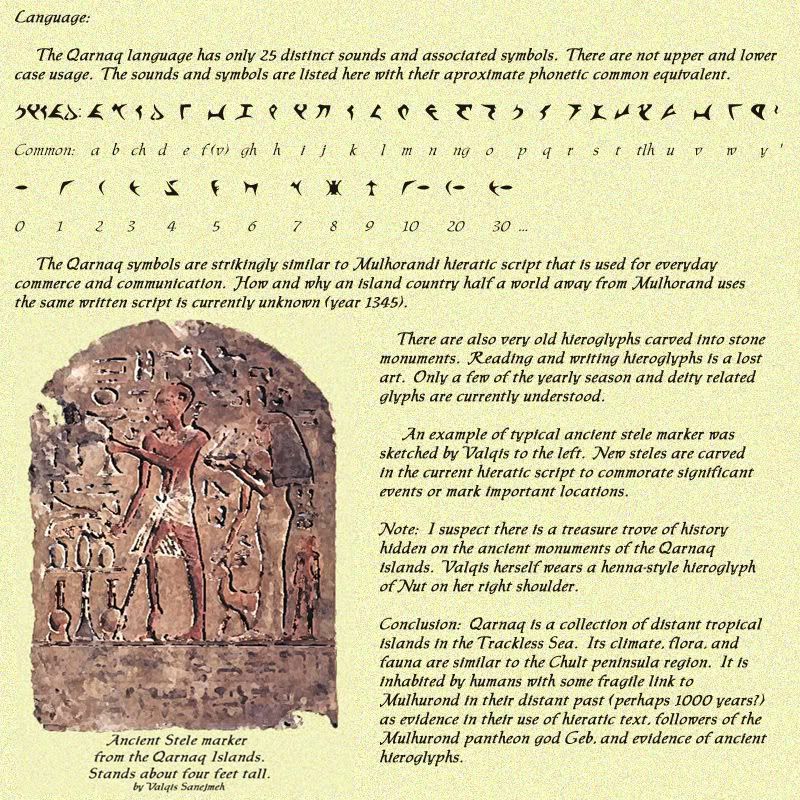 Language:
The Qarnaq language has only 25 distinct sounds and associated symbols. There are not upper and lower
case usage. The sounds and symbols are listed here with their aproximate phonetic common equivalent.
Common: a b ch d e f(v) gh h i j k l m n ng o p q r s t tlh u v w y '
0 1 2 3 4 5 6 7 8 9 10 20 30 ...
The Qarnaq symbols are strikingly similar to Mulhorandi hieratic script that is used for everyday
commerce and communication. How and why an island country half a world away from Mulhorand uses
the same written script is currently unknown (year 1345).
There are also very old hieroglyphs carved into stone
monuments. Reading and writing hieroglyphs is a lost
art. Only a few of the yearly season and deity related
glyphs are currently understood.
An example of typical ancient stele marker was
sketched by Valqis to the left. New steles are carved
in the current hieratic script to commorate significant
events or mark important locations.
Note: I suspect there is a treasure trove of history
hidden on the ancient monuments of the Qarnaq
islands. Valqis herself wears a henna-style hieroglyph
of Nut on her right shoulder.
Conclusion: Qarnaq is a collection of distant tropical
islands in the Trackless Sea. Its climate, flora, and
fauna are similar to the Chult peninsula region. It is
inhabited by humans with some fragile link to
Mulhurond in their distant past (perhaps 1000 years?)
as evidence in their use of hieratic text, followers of the
Mulhurond pantheon god Geb, and evidence of ancient
hieroglyphs.
Ancient Stele marker
from the Qarnaq Islands.
Stands about four feet tall.
by Valqis Sanejmeh